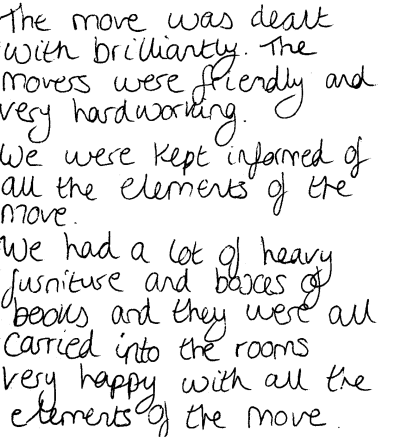 The move was dealt
with brilliantly. The
movers were friendly and
very hardworking.
We were kept informed of
all the elements of the
move.
We had a lot of heavy
furniture and boxes of
books and they were all
carried into the rooms
very happy with all the
elements of the move.